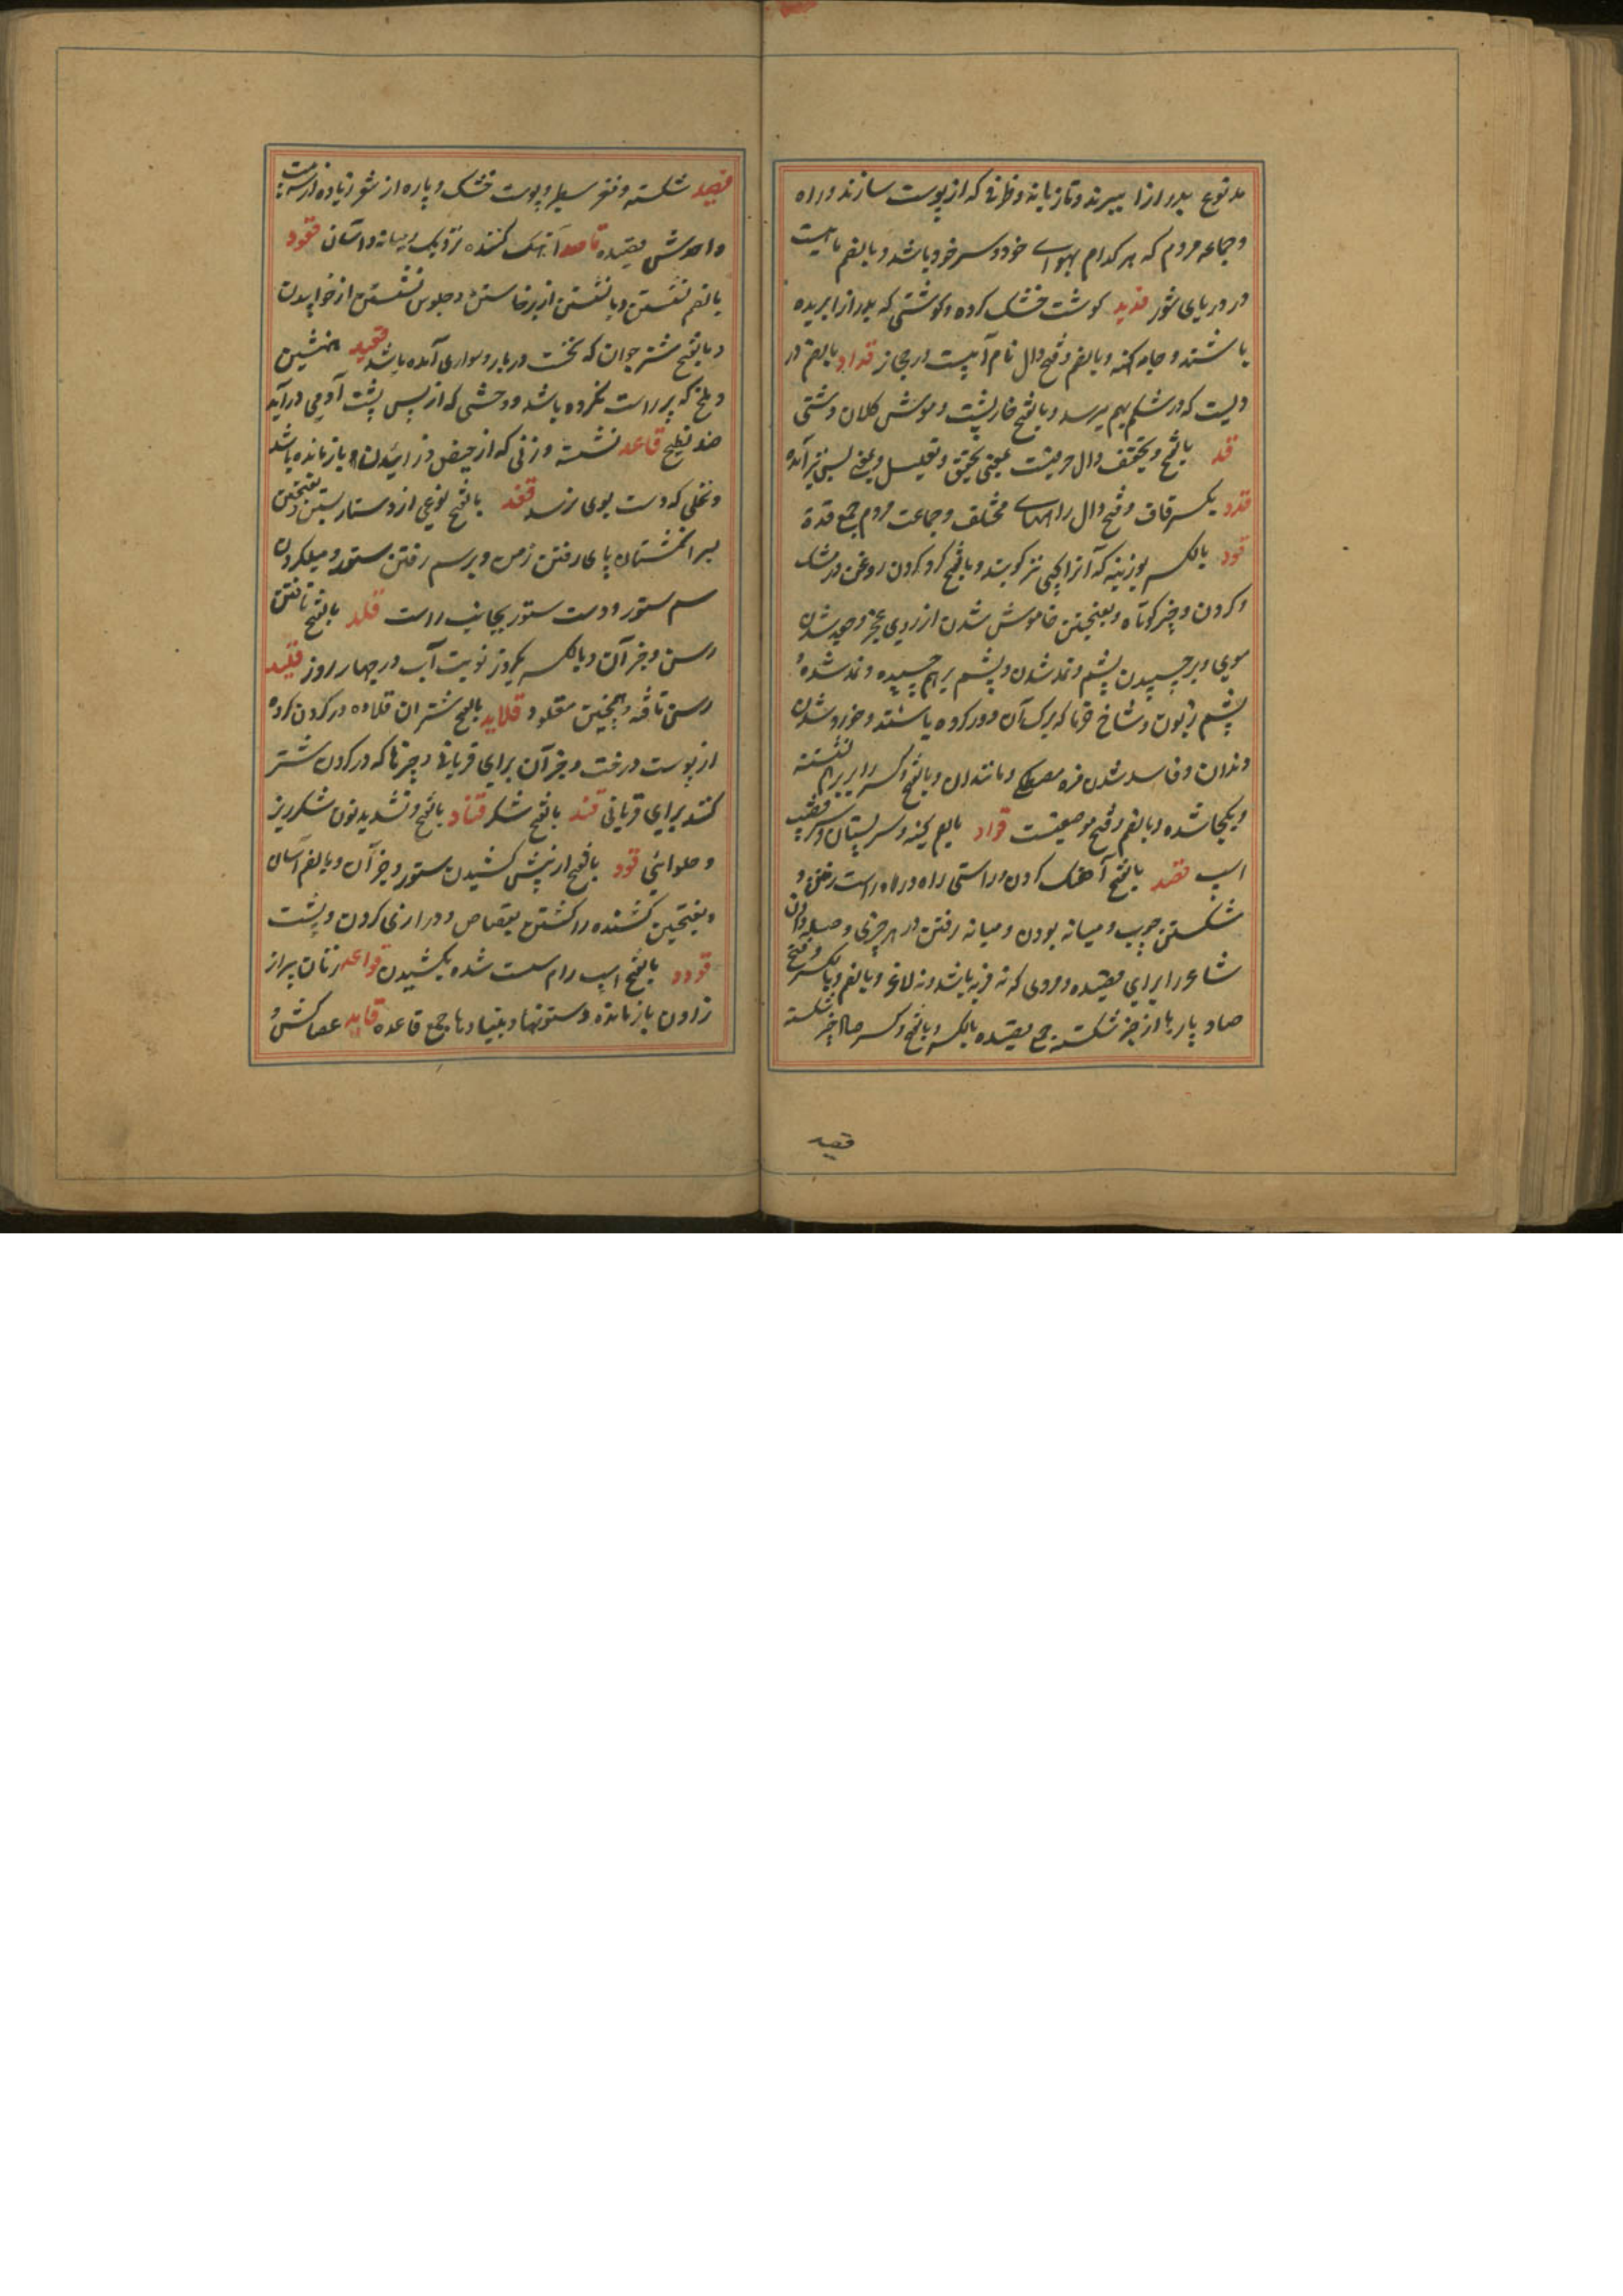 مدنوع بدرازا ببرند و تازیانه و ظرفی که از پوست سازند و راه
و جماعه مردم که هر کدام بهوای خود و سر خود باشد و بالضم ماهیست
در دریای شور قدید گوشت خشک کرده و گوشتی که بدرازا بریده
باشند و جامه کهنه و بالضم و فتح دال نام آبیست در حجاز قداد بالضم در
دیست که در شکم بهم میرسد و بالفتح خارپشت و موش کلان دشتی
قد بالفتح و تخفیف دال حرفیست بمعنی تحقیق و تقلیل و بمعنی بس نیز آمده
قدد بکسر قاف و فتح دال راههای مختلف و جماعت مردم جمع قدة
قرد بالکسر بوزینه که آنرا کپی نیز گویند و بالفتح گرد کردن روغن در مشک
و کردن و چیز کوتاه و بفتحتین خاموش شدن از روی عجز و جعد شدن
موی و برچسپیدن پشم و نمد شدن و پشم برهم چسپیده و نمد شده و
پشم زبون و شاخ خرما که برگ آن دور کرده باشند و خرد شدن
دندان و فاسد شدن مزه مصطکی و مانند آن و بالفتح و کسر را بر هم نشسته
و یکجا شده و بالضم و فتح موضعیست قراد بالضم کنه و سر پستان و سر قضیب
اسپ قصد بالفتح آهنگ کردن و راستی راه و در راه راست رفتن و
شکستن چوب و میانه بودن و میانه رفتن در هر چیزی و صله دادن
شاعر را برای قصیده و مردی که نه فربه باشد و نه لاغر و بالضم و بالکسر و فتح
صاد پاره ها از چیز شکسته جمع قصیده بالکسر و بالفتح و کسر صاد چیز شکسته
قصید
قصید شکسته و مغز سطبر و پوست خشک و پاره از شعر زیاده از سه بیت
واحدش قصیده قاصد آهنگ کننده نزدیک و میانه و آسان قعود
بالضم نشستن و یا نشستن از برخاستن و جلوس نشستن از خوابیدن
و بالفتح شتر جوان که نخست در بار و سواری آمده باشد قعید همنشین
و ملخ که پر راست نکرده باشد و وحشی که از پس پشت آدمی در آید
ضد نطیح قاعد نشسته و زنی که از حیض و زائیدن باز مانده باشد
و نخلی که دست بوی رسد قفد بالفتح نوعی از دستار بستن و بفتحتین
بسر انگشتان پای رفتن زمین و بر سم رفتن ستور و میل کردن
سم ستور و دست ستور بجانب راست قلد بالفتح تافتن
رسن و جز آن و بالکسر یکروز نوبت آب در چهار روز قلید
رسن تافته و همچنین مقلود قلاید بالفتح شتران قلاده در گردن کرده
از پوست درخت و جز آن برای قربانی و چیزها که در گردن شتر
کنند برای قربانی قند بالفتح شکر قناد بالفتح و تشدید نون شکر ریز
و حلوائی قود بالفتح از پیش کشیدن ستور و جز آن و بالضم آسان
و بفتحتین کشنده را کشتن بقصاص و درازی گردن و پشت
قوود بالفتح اسپ رام سست شده بکشیدن قواعد زنان پیر از
زادن بازمانده و ستونها و بنیادها جمع قاعده قاید عصاکش و